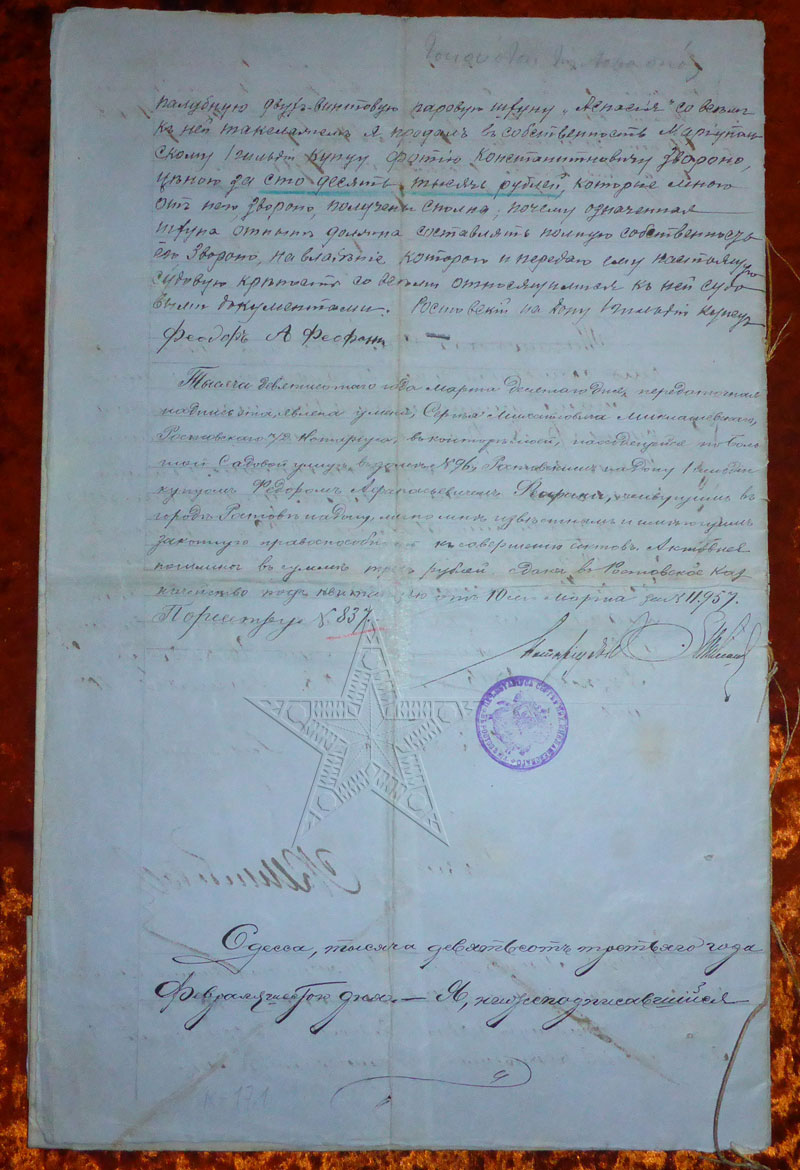 палубную двухъ-винтовую паровую шкуну „Аспасія" со всѣмъ
къ ней такелажемъ я продалъ въ собственность Маріуполь
скому 1 гильдіи купцу Фотію Константиновичу Звороно,
цѣною за сто десять тысячъ рублей, которые мною
отъ него Звороно, получены сполна; почему означенная
шкуна отнынѣ должна составлять полную собственность
его Звороно, на владѣніе которою и передаю ему настоящую
судовую крѣпость со всѣми относящимися къ ней судо
выми документами. Ростовскій на Дону 1 гильдіи купецъ
Феодоръ А
Тысяча девятисотаго года Марта десятаго дня, передаточная
надпись эта, явлена у меня, Сергѣя Михайловича Миклашевскаго,
Ростовскаго н/Д Нотаріуса, въ конторѣ моей, находящейся по Боль
шой Садовой улицѣ, въ домѣ № 76, Ростовскимъ на Дону 1 гильдіи
купцомъ Федоромъ Афанасьевичемъ живущимъ въ
городѣ Ростовѣ на Дону, лично мнѣ извѣстнымъ и имѣющимъ
законную правоспособность къ совершенію актовъ. Актовыя
пошлины въ суммѣ трехъ рублей въ Ростовское Каз
начейство подъ квитанцію отъ 10 Марта за № 11.957.
По реестру № 837.
Нотаріусъ
Одесса, тысяча девятьсотъ третьяго года
Февраля дня. — Я, нижеподписавшійся